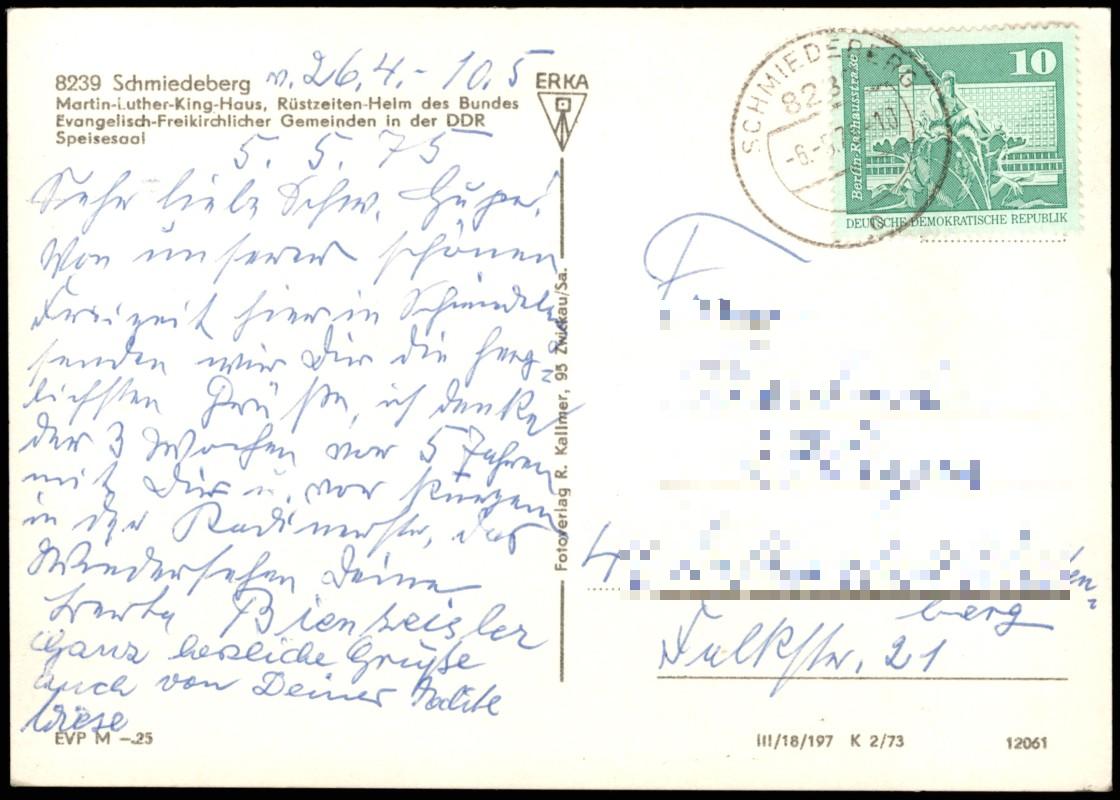 8239 Schmiedeberg v. 26.4.-10.5
Martin-Luther-King-Haus, Rüstzeiten-Heim des Bundes
Evangelisch-Freikirchlicher Gemeinden in der DDR
Speisesaal
ERKA
5. 5. 75
Sehr liebe Schw.
Von unserer schönen
Freizeit hier in
senden wir Dir die herz-
lichsten Grüße, ich denke
der 3 Wochen vor 5 Jahren
mit Dir u. vor kurzem
in der das
Wiedersehen Deine
Ganz herzliche Grüße
auch von Deiner
EVP M -.25
Fotoverlag R. Kallmer, 95 Zwickau/Sa.
SCHMIEDEBERG
10
Berlin-Rathausstraße
DEUTSCHE DEMOKRATISCHE REPUBLIK
berg
Falkstr. 21
III/18/197 K 2/73
12061